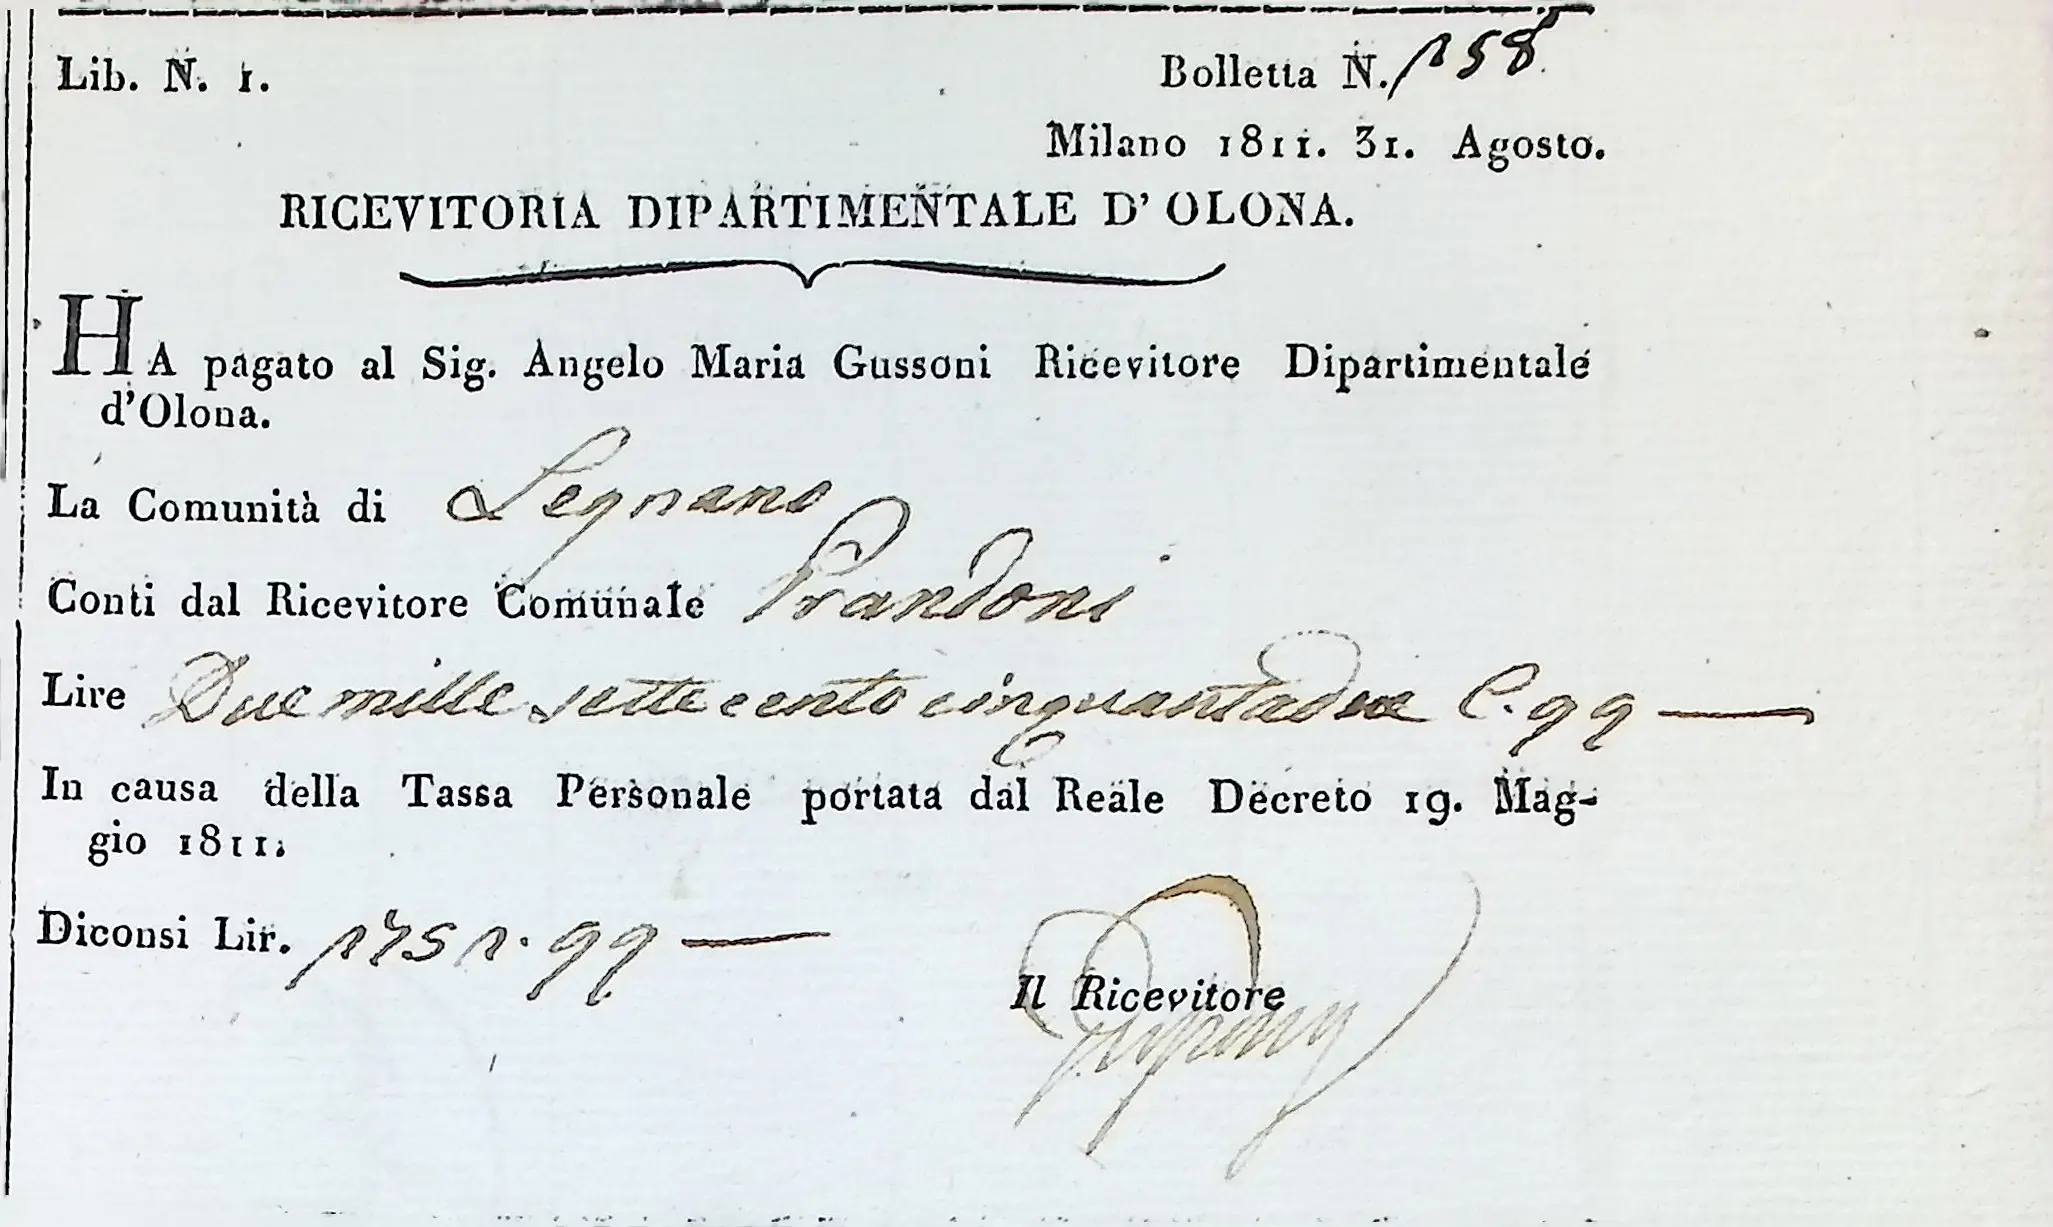 Lib. N. 1.
Bolletta N. 258
Milano 1811. 31. Agosto.
RICEVITORIA DIPARTIMENTALE D' OLONA.
HA pagato al Sig. Angelo Maria Gussoni Ricevitore Dipartimentale
d'Olona.
La Comunità di Legnano
Conti dal Ricevitore Comunale Prandoni
Lire Due mille sette cento cinquantadue C. 99 —
In causa della Tassa Personale portata dal Reale Decreto 19. Mag-
gio 1811.
Diconsi Lir. 2752. 99 —
Il Ricevitore